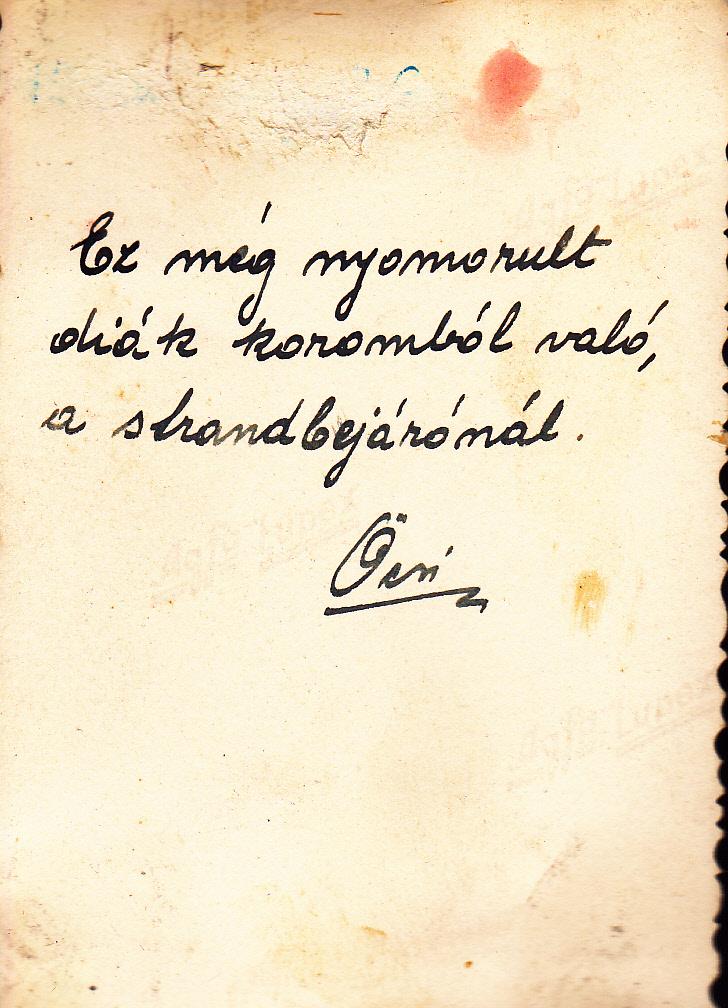 Ez még nyomorult
diák koromból való,
a strandbejárónál.
Öcsi